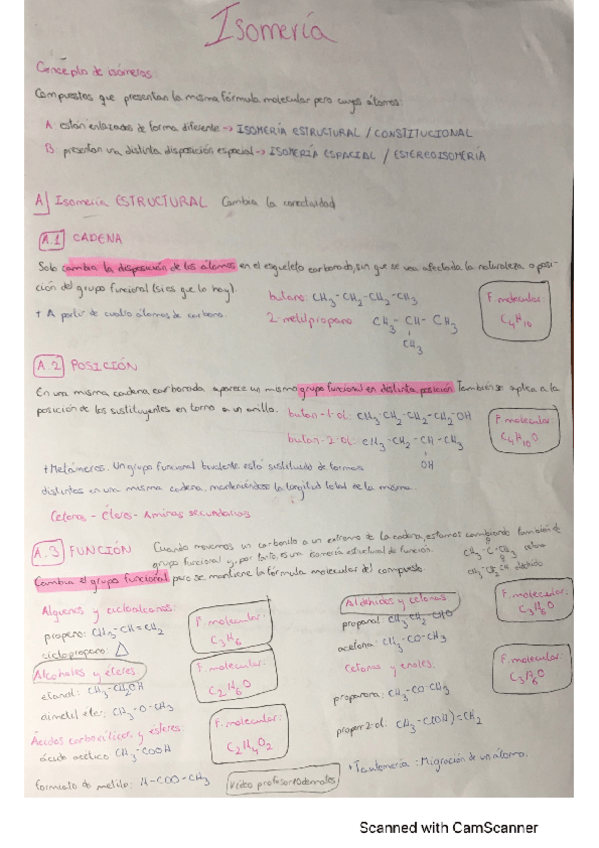 Isomería
Concepto de isómeros
Compuestos que presentan la misma fórmula molecular pero cuyos átomos:
A están enlazados de forma diferente -> ISOMERÍA ESTRUCTURAL / CONSTITUCIONAL
B presentan una distinta disposición espacial -> ISOMERÍA ESPACIAL / ESTEREOISOMERÍA
A Isomería ESTRUCTURAL Cambia la conectividad
A.1 CADENA
Solo cambia la disposición de los átomos en el esqueleto carbonado, sin que se vea afectada la naturaleza o posi-
ción del grupo funcional (si es que lo hay).
butano CH3-CH2-CH2-CH3
F. molecular:
C4H10
+ A partir de cuatro átomos de carbono.
2-metilpropano CH3-CH-CH3
CH3
A.2 POSICIÓN
En una misma cadena carbonada aparece un mismo grupo funcional en distinta posición. También se aplica a la
posición de los sustituyentes en torno a un anillo.
butan-1-ol: CH3-CH2-CH2-CH2-OH
F. molecular:
C4H10O
butan-2-ol: CH3-CH2-CH-CH3
OH
+ Metámeros. Un grupo funcional bivalente está sustituido de formas
distintas en una misma cadena, manteniéndose la longitud total de la misma.
Cetonas - Éteres - Aminas secundarias
A.3 FUNCIÓN
Cuando movemos un carbonilo a un extremo de la cadena, estamos cambiando también el
grupo funcional y, por tanto, es um isomería estructural de función.
cetona
aldehído
Cambia el grupo funcional pero se mantiene la fórmula molecular del compuesto.
Alquenos y cicloalcanos:
propeno: CH3-CH=CH2
ciclopropano:
F. molecular:
C3H6
Alcoholes y éteres
etanol: CH3-CH2OH
dimetil éter: CH3-O-CH3
F. molecular:
C2H6O
Ácidos carboxílicos y ésteres:
ácido acético CH3-COOH
formiato de metilo: H-COO-CH3
F. molecular:
C2H4O2
Vídeo profesor10demates
Aldehídos y cetonas:
propanal: CH3 CH2 CHO
acetona: CH3-CO-CH3
F. molecular:
C3H6O
Cetonas y enoles:
propanona: CH3-CO-CH3
propen-2-ol: CH3-C(OH)=CH2
F. molecular:
C3H6O
+ Tautomería: Migración de un átomo.
Scanned with CamScanner